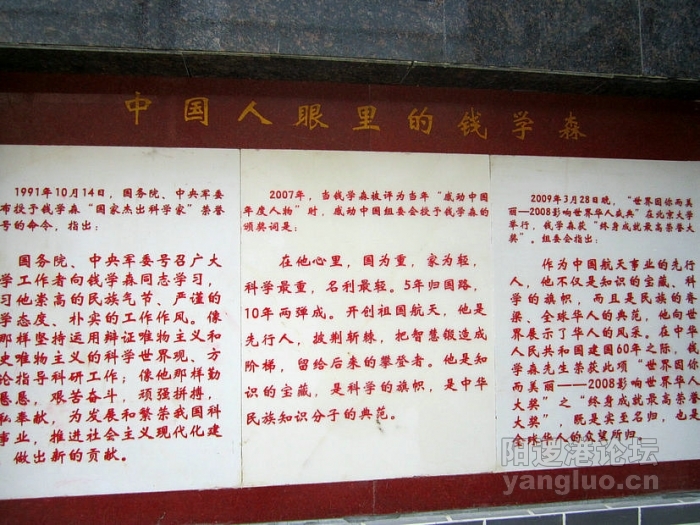 中国人眼里的钱学森
1991年10月14日，国务院、中央军委
布授予钱学森“国家杰出科学家”荣誉
号的命令，指出：
国务院、中央军委号召广大
学工作者向钱学森同志学习，
习他崇高的民族气节、严谨的
学态度、朴实的工作作风。像
那样坚持运用辩证唯物主义和
史唯物主义的科学世界观、方
论指导科研工作；像他那样勤
恳恳，艰苦奋斗，顽强拼搏，
私奉献，为发展和繁荣我国科
事业，推进社会主义现代化建
做出新的贡献。
2007年，当钱学森被评为当年“感动中国
年度人物”时，感动中国组委会授予钱学森的
颁奖词是：
在他心里，国为重，家为轻，
科学最重，名利最轻。5年归国路，
10年两弹成。开创祖国航天，他是
先行人，披荆斩棘，把智慧锻造成
阶梯，留给后来的攀登者。他是知
识的宝藏，是科学的旗帜，是中华
民族知识分子的典范。
2009年3月28日晚，“世界因你而美
丽—2008影响世界华人盛典”在北京大学
举行，钱学森获“终身成就最高荣誉大
奖”。组委会指出：
作为中国航天事业的先行
人，他不仅是知识的宝藏、科
学的旗帜，而且是民族的脊
梁、全球华人的典范，他向世
界展示了华人的风采。在中华
人民共和国建国60年之际，钱
学森先生荣获此项“世界因你
而美丽——2008影响世界华人
大奖”之“终身成就最高荣誉
大奖”，既是实至名归，也是
全球华人的众望所归。
阳逻港论坛
yangluo.cn